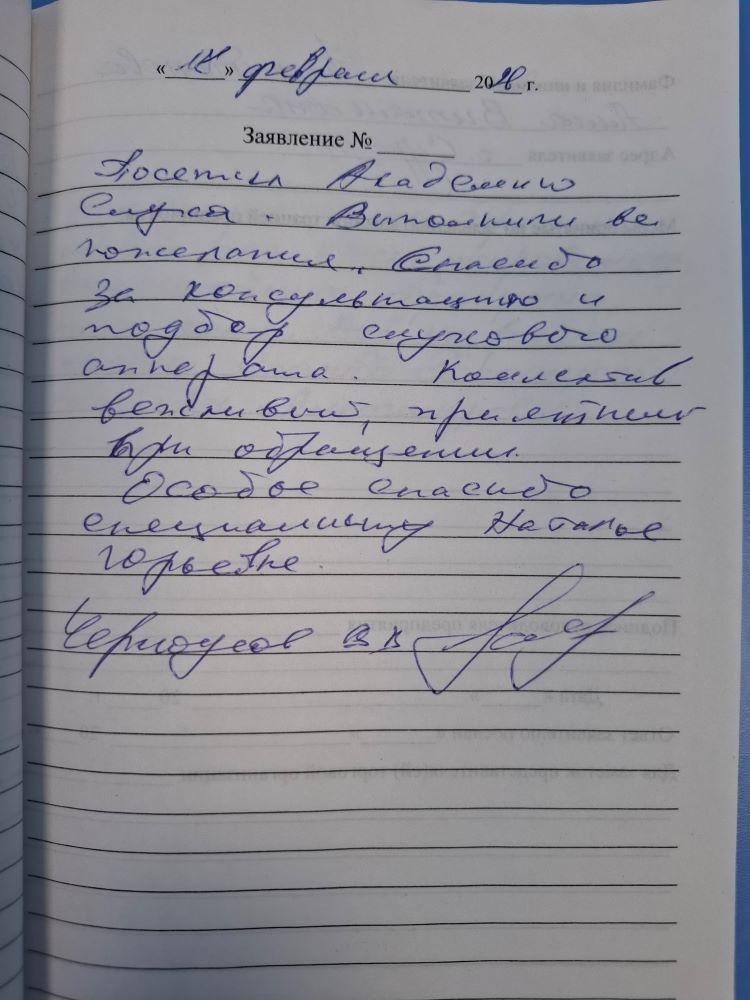 « 18 » февраля 2026 г.
Заявление №
Посетил Академию
Слуха. Выполнили все
пожелания. Спасибо
за консультацию и
подбор слухового
аппарата. Коллектив
вежливый, приятный
при обращении.
Особое спасибо
специалисту Наталье
Юрьевне.
Черноусов ВВ